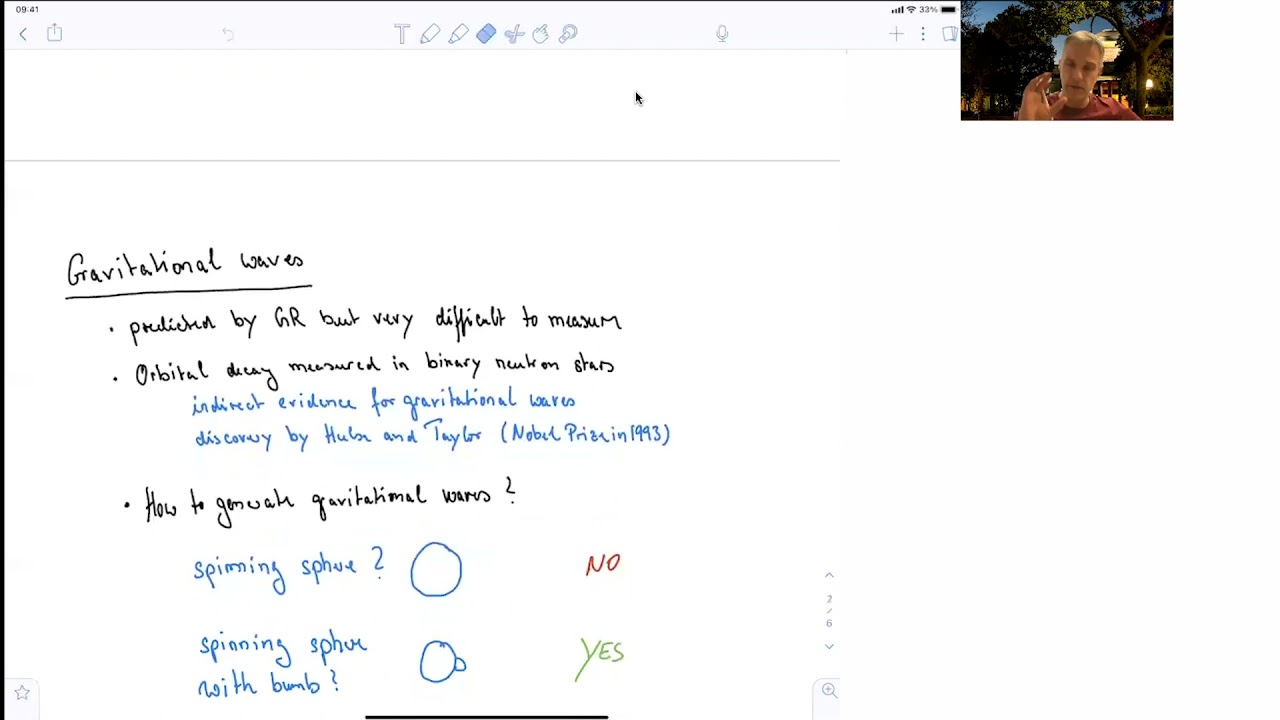 09:41
33%
Gravitational waves
• predicted by GR but very difficult to measure
• Orbital decay measured in binary neutron stars
indirect evidence for gravitational waves
discovery by Hulse and Taylor (Nobel Prize in 1993)
• How to generate gravitational waves?
spinning sphere? NO
spinning sphere
with bumb? YES
2
/
6